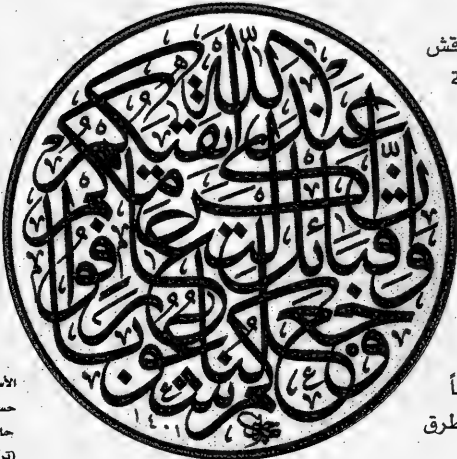 وَجَعَلْنَاكُمْ شُعُوبًا
وَقَبَائِلَ لِتَعَارَفُوا
إِنَّ أَكْرَمَكُمْ
عِنْدَ اللَّهِ أَتْقَيٰكُمْ
١٤٠١
قش
ة
اً
طرق
حس